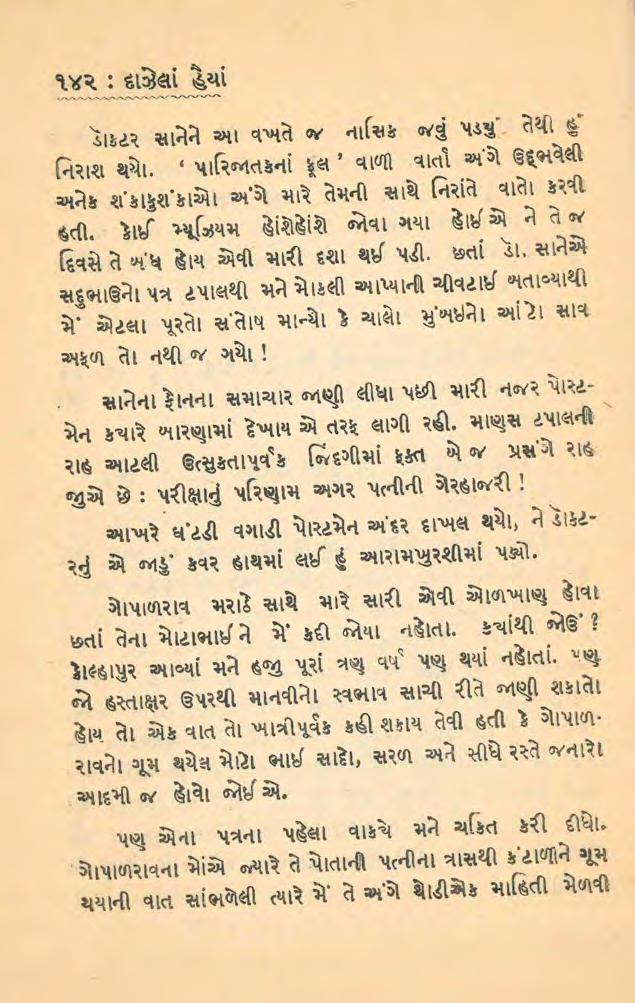 ૧૪૨ : દાઝેલાં હૈયાં
ડૉક્ટર સાનેને આ વખતે જ નાસિક જવું પડ્યું તેથી હું
નિરાશ થયો. ‘ પારિજાતકનાં ફૂલ ’ વાળી વાર્તા અંગે ઉદ્દભવેલી
અનેક શંકાકુશંકાઓ અંગે મારે તેમની સાથે નિરાંતે વાતો કરવી
હતી. કોઈ મ્યૂઝિયમ હોંશેહોંશે જોવા ગયા હોઈએ ને તે જ
દિવસે તે બંધ હોય એવી મારી દશા થઈ પડી. છતાં ડૉ. સાનેએ
સદુભાઉનો પત્ર ટપાલથી મને મોકલી આપ્યાની ચીવટાઈ બતાવ્યાથી
મેં એટલા પૂરતો સંતોષ માન્યો કે ચાલો મુંબઇનો આંટો સાવ
અફળ તો નથી જ ગયો !
સાનેના ફોનના સમાચાર જાણી લીધા પછી મારી નજર પોસ્ટ-
મેન કયારે બારણામાં દેખાય એ તરફ લાગી રહી. માણસ ટપાલની
રાહ આટલી ઉત્સુકતાપૂર્વક જિંદગીમાં ફક્ત બે જ પ્રસંગે રાહ
જુએ છે : પરીક્ષાનું પરિણામ અગર પત્નીની ગેરહાજરી !
આખરે ઘંટડી વગાડી પોસ્ટમેન અંદર દાખલ થયો, ને ડૉક્ટ-
રનું એ જાડું કવર હાથમાં લઈ હું આરામખુરશીમાં પડ્યો.
ગોપાળરાવ મરાઠે સાથે મારે સારી એવી ઓળખાણ હોવા
છતાં તેના મોટાભાઈને મેં કદી જોયા નહોતા. કયાંથી જોઉં ?
કોલ્હાપુર આવ્યાં મને હજી પૂરાં ત્રણ વર્ષ પણ થયાં નહોતાં. પણ
જો હસ્તાક્ષર ઉપરથી માનવીનો સ્વભાવ સાચી રીતે જાણી શકાતો
હોય તો એક વાત તો ખાત્રીપૂર્વક કહી શકાય તેવી હતી કે ગોપાળ-
રાવનો ગૂમ થયેલ મોટો ભાઈ સાદો, સરળ અને સીધે રસ્તે જનારો
આદમી જ હોવો જોઈએ.
પણ એના પત્રના પહેલા વાકયે મને ચકિત કરી દીધો.
ગોપાળરાવના મોંએ જ્યારે તે પોતાની પત્નીના ત્રાસથી કંટાળીને ગૂમ
થયાની વાત સાંભળેલી ત્યારે મેં તે અંગે થોડીએક માહિતી મેળવી